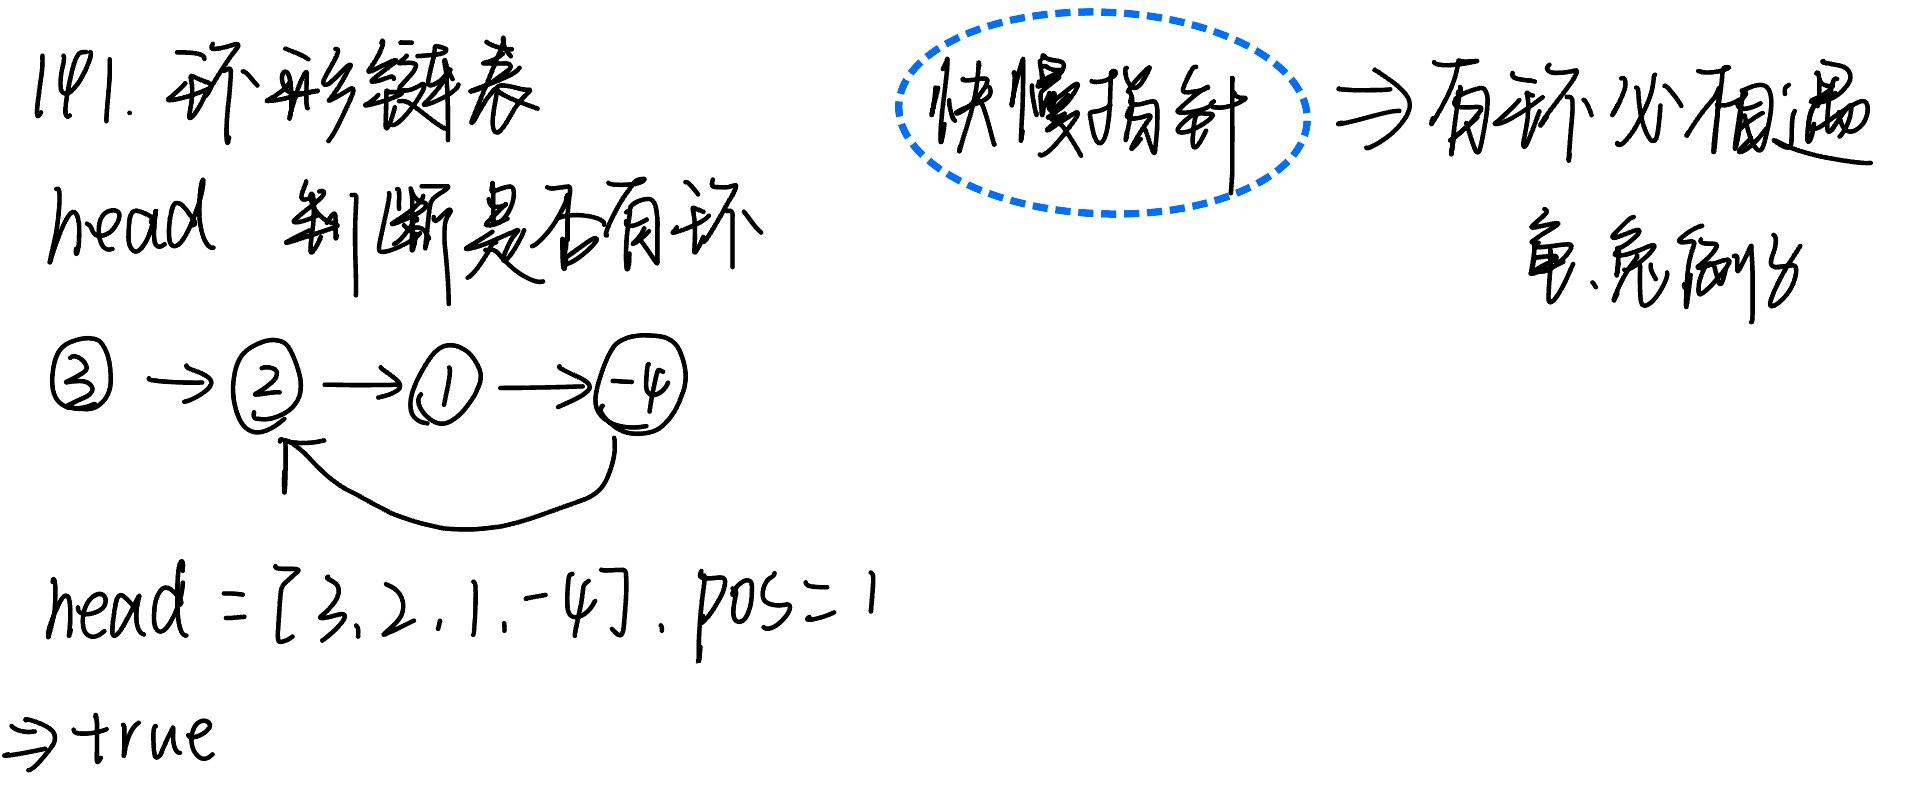 141. 环形链表
head 判断是否有环
③ → ② → ① → -4
head = [3, 2, 1, -4], pos = 1
⇒ true
快慢指针 ⇒ 有环必相遇
龟、兔例子